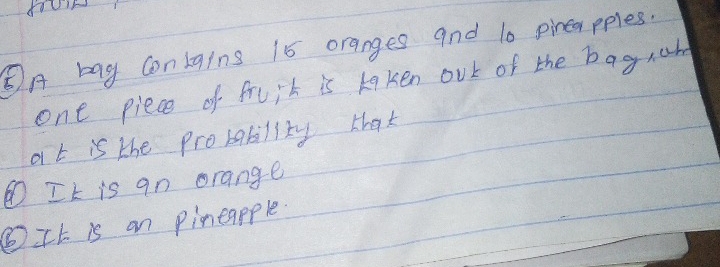 fruit
⑤ A bag contains 15 oranges and 10 pineapples.
one piece of fruit is taken out of the bag, wh
at is the probability that
ⓐ It is an orange
ⓑ It is an pineapple.